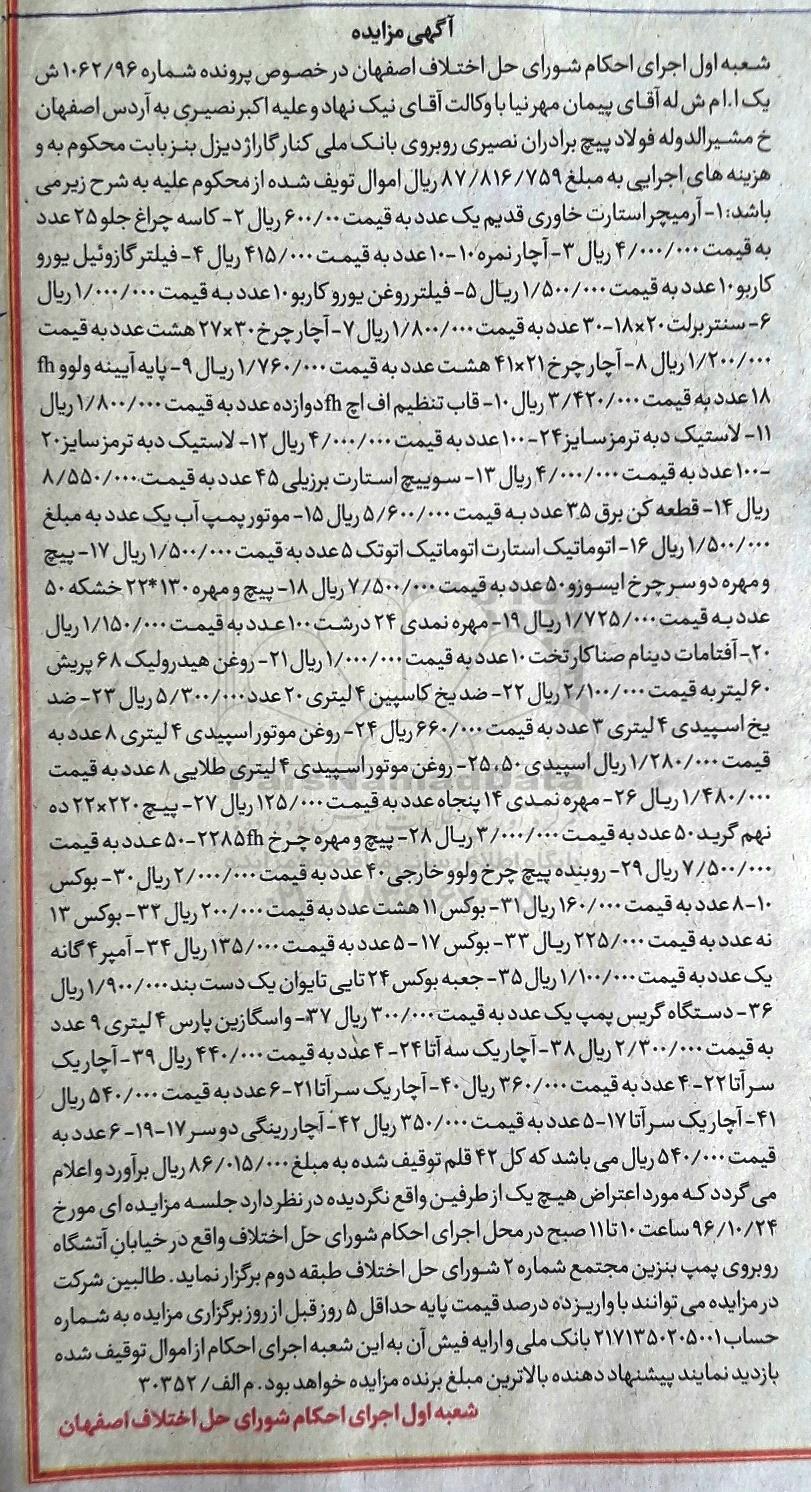 آگهی مزایده
شعبه اول اجرای احکام شورای حل اختلاف اصفهان در خصوص پرونده شماره ۱۰۶۲/۹۶ ش
یک ا.ا م ش له آقای پیمان مهرنیا با وکالت آقای نیک نهاد و علیه اکبر نصیری به آردس اصفهان
خ مشیرالدوله فولاد پیچ برادران نصیری روبروی بانک ملی کنار گاراژ دیزل بنز بابت محکوم به و
هزینه های اجرایی به مبلغ ۸۷/۸۱۶/۷۵۹ ریال اموال تویف شده از محکوم علیه به شرح زیر می
باشد: ۱- آرمیچر استارت خاوری قدیم یک عدد به قیمت ۶۰۰/۰۰ ریال ۲- کاسه چراغ جلو ۲۵ عدد
به قیمت ۴/۰۰۰/۰۰۰ ریال ۳- آچار نمره ۱۰-۱۰ عدد به قیمت ۴۱۵/۰۰۰ ریال ۴- فیلتر گازوئیل یورو
کاربو ۱۰ عدد به قیمت ۱/۵۰۰/۰۰۰ ریال ۵- فیلتر روغن یورو کاربو ۱۰ عدد به قیمت ۱/۰۰۰/۰۰۰ ریال
۶- سنتر برلت ۲۰×۱۸-۳۰ عدد به قیمت ۱/۸۰۰/۰۰۰ ریال ۷- آچار چرخ ۳۰×۲۷ هشت عدد به قیمت
۱/۲۰۰/۰۰۰ ریال ۸- آچار چرخ ۲۱×۴۱ هشت عدد به قیمت ۱/۷۶۰/۰۰۰ ریال ۹- پایه آیینه ولوو fh
۱۸ عدد به قیمت ۳/۴۲۰/۰۰۰ ریال ۱۰- قاب تنظیم اف اچ fh دوازده عدد به قیمت ۱/۸۰۰/۰۰۰ ریال
۱۱- لاستیک دبه ترمز سایز ۲۴-۱۰۰ عدد به قیمت ۴/۰۰۰/۰۰۰ ریال ۱۲- لاستیک دبه ترمز سایز ۲۰
-۱۰۰ عدد به قیمت ۴/۰۰۰/۰۰۰ ریال ۱۳- سوییچ استارت برزیلی ۴۵ عدد به قیمت ۸/۵۵۰/۰۰۰
ریال ۱۴- قطعه کن برق ۳۵ عدد به قیمت ۵/۶۰۰/۰۰۰ ریال ۱۵- موتور پمپ آب یک عدد به مبلغ
۱/۵۰۰/۰۰۰ ریال ۱۶- اتوماتیک استارت اتوماتیک اتوتک ۵ عدد به قیمت ۱/۵۰۰/۰۰۰ ریال ۱۷- پیچ
و مهره دو سر چرخ ایسوزو ۵۰ عدد به قیمت ۷/۵۰۰/۰۰۰ ریال ۱۸- پیچ و مهره ۱۳۰*۲۲ خشکه ۵۰
عدد به قیمت ۱/۷۲۵/۰۰۰ ریال ۱۹- مهره نمدی ۲۴ درشت ۱۰۰ عدد به قیمت ۱/۱۵۰/۰۰۰ ریال
۲۰- آفتامات دینام صناکار تخت ۱۰ عدد به قیمت ۱/۰۰۰/۰۰۰ ریال ۲۱- روغن هیدرولیک ۶۸ پریش
۶۰ لیتر به قیمت ۲/۱۰۰/۰۰۰ ریال ۲۲- ضد یخ کاسپین ۴ لیتری ۲۰ عدد ۵/۳۰۰/۰۰۰ ریال ۲۳- ضد
یخ اسپیدی ۴ لیتری ۳ عدد به قیمت ۶۶۰/۰۰۰ ریال ۲۴- روغن موتور اسپیدی ۴ لیتری ۸ عدد به
قیمت ۱/۲۸۰/۰۰۰ ریال اسپیدی ۵۰، ۲۵- روغن موتور اسپیدی ۴ لیتری طلایی ۸ عدد به قیمت
۱/۴۸۰/۰۰۰ ریال ۲۶- مهره نمدی ۱۴ پنجاه عدد به قیمت ۱۲۵/۰۰۰ ریال ۲۷- پیچ ۲۲۰×۲۲ ده
نهم گرید ۵۰ عدد به قیمت ۳/۰۰۰/۰۰۰ ریال ۲۸- پیچ و مهره چرخ ۲۲۸۵fh-۵۰ عدد به قیمت
۷/۵۰۰/۰۰۰ ریال ۲۹- روبنده پیچ چرخ ولوو خارجی ۴۰ عدد به قیمت ۲/۰۰۰/۰۰۰ ریال ۳۰- بوکس
۱۰-۸ عدد به قیمت ۱۶۰/۰۰۰ ریال ۳۱- بوکس ۱۱ هشت عدد به قیمت ۲۰۰/۰۰۰ ریال ۳۲- بوکس ۱۳
نه عدد به قیمت ۲۲۵/۰۰۰ ریال ۳۳- بوکس ۱۷-۵ عدد به قیمت ۱۳۵/۰۰۰ ریال ۳۴- آمپر ۴ گانه
یک عدد به قیمت ۱/۱۰۰/۰۰۰ ریال ۳۵- جعبه بوکس ۲۴ تایی تایوان یک دست بند ۱/۹۰۰/۰۰۰ ریال
۳۶- دستگاه گریس پمپ یک عدد به قیمت ۳۰۰/۰۰۰ ریال ۳۷- واسگازین پارس ۴ لیتری ۹ عدد
به قیمت ۲/۳۰۰/۰۰۰ ریال ۳۸- آچار یک سه آتا ۲۴-۴ عدد به قیمت ۴۴۰/۰۰۰ ریال ۳۹- آچار یک
سر آتا ۲۲-۴ عدد به قیمت ۳۶۰/۰۰۰ ریال ۴۰- آچار یک سر آتا ۲۱-۶ عدد به قیمت ۵۴۰/۰۰۰ ریال
۴۱- آچار یک سر آتا ۱۷-۵ عدد به قیمت ۳۵۰/۰۰۰ ریال ۴۲- آچار رینگی دو سر ۱۷-۱۹-۶ عدد به
قیمت ۵۴۰/۰۰۰ ریال می باشد که کل ۴۲ قلم توقیف شده به مبلغ ۸۶/۰۱۵/۰۰۰ ریال برآورد و اعلام
می گردد که مورد اعتراض هیچ یک از طرفین واقع نگردیده در نظر دارد جلسه مزایده ای مورخ
۹۶/۱۰/۲۴ ساعت ۱۰ تا ۱۱ صبح در محل اجرای احکام شورای حل اختلاف واقع در خیابان آتشگاه
روبروی پمپ بنزین مجتمع شماره ۲ شورای حل اختلاف طبقه دوم برگزار نماید. طالبین شرکت
در مزایده می توانند با واریز ده درصد قیمت پایه حداقل ۵ روز قبل از روز برگزاری مزایده به شماره
حساب ۲۱۷۱۳۵۰۲۰۵۰۰۱ بانک ملی و ارایه فیش آن به این شعبه اجرای احکام از اموال توقیف شده
بازدید نمایند پیشنهاد دهنده بالاترین مبلغ برنده مزایده خواهد بود. م الف/ ۳۰۳۵۲
شعبه اول اجرای احکام شورای حل اختلاف اصفهان